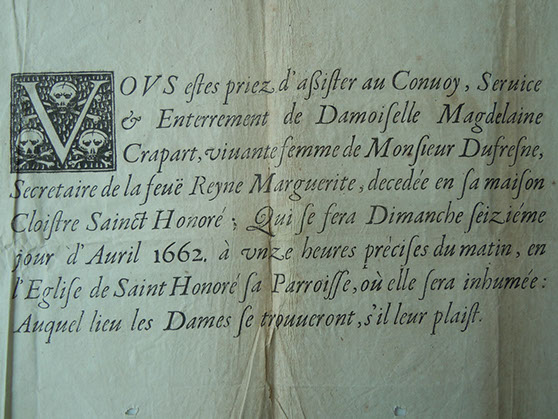 VOVS eſtes priez d'aßiſter au Conuoy, Seruice
& Enterrement de Damoiſelle Magdelaine
Crapart, viuante femme de Monſieur Dufreſne,
Secretaire de la feuë Reyne Marguerite, decedée en ſa maiſon
Cloiſtre Sainct Honoré ; Qui ſe fera Dimanche ſeiziéme
jour d'Auril 1662. à vnze heures préciſes du matin, en
l'Egliſe de Saint Honoré ſa Parroiſſe, où elle ſera inhumée :
Auquel lieu les Dames ſe trouueront, s'il leur plaiſt.